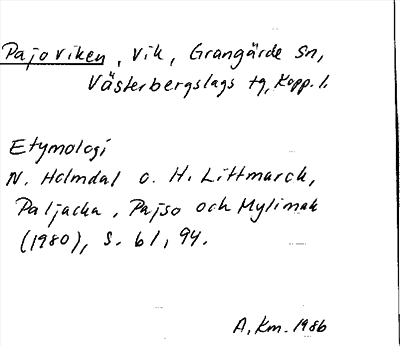 Pajoviken, vik, Grangärde sn,
Västerbergslags tg, Kopp. l.
Etymologi
N. Holmdal o. H. Littmarck,
Paljacka, Pajso och Mylimak
(1980), s. 61, 94.
A. Km. 1986